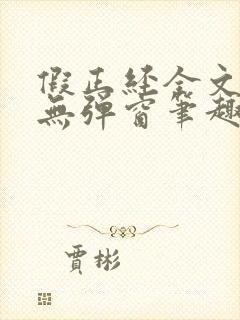 假正經全文
無彈窗筆趣
賈彬